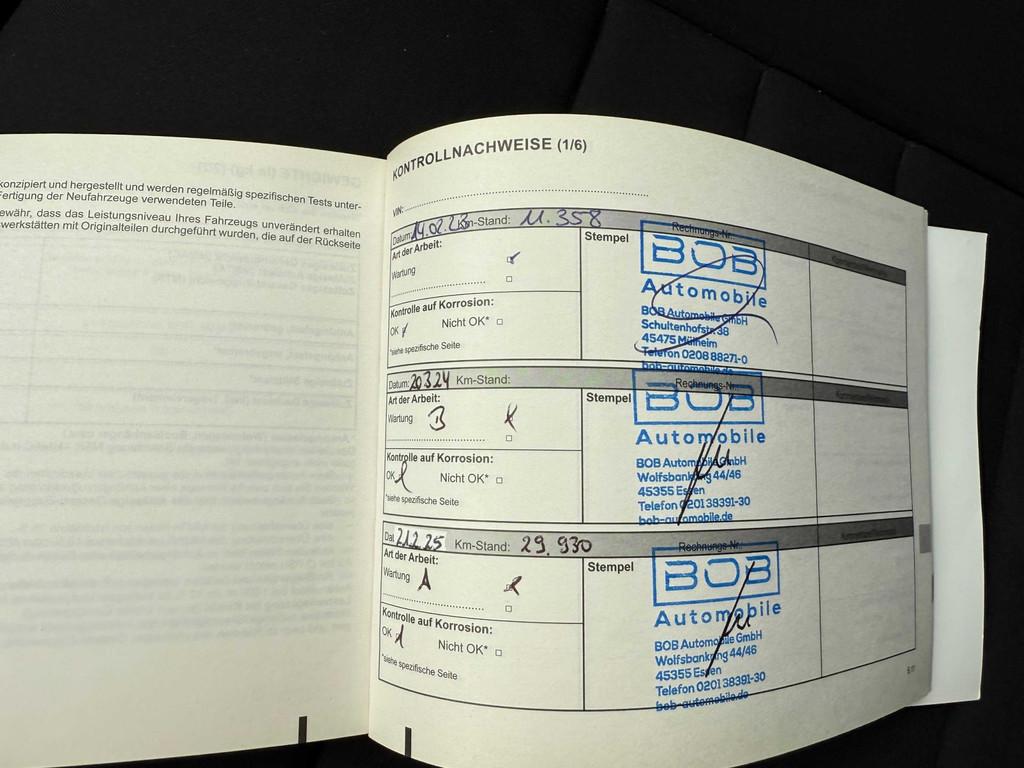 konzipiert und hergestellt und werden regelmäßig spezifischen Tests unter-
Fertigung der Neufahrzeuge verwendeten Teile.
ewähr, dass das Leistungsniveau Ihres Fahrzeugs unverändert erhalten
swerkstätten mit Originalteilen durchgeführt wurden, die auf der Rückseite
KONTROLLNACHWEISE (1/6)
VIN:
Datum: 14.02.23 Km-Stand: 11.358
Rechnungs-Nr.:
Art der Arbeit:
Stempel
Wartung
Kontrolle auf Korrosion:
OK Nicht OK*
*siehe spezifische Seite
BOB
Automobile
BOB Automobile GmbH
Schultenhofstr. 38
45475 Mülheim
Telefon 0208 88271-0
bob-automobile.de
Datum: 20324 Km-Stand:
Rechnungs-Nr.:
Art der Arbeit:
Stempel
Wartung B
Kontrolle auf Korrosion:
OK Nicht OK*
*siehe spezifische Seite
BOB
Automobile
BOB Automobile GmbH
Wolfsbankring 44/46
45355 Essen
Telefon 0201 38391-30
bob-automobile.de
Dat 21.2.25 Km-Stand: 29.930
Rechnungs-Nr.:
Art der Arbeit:
Stempel
Wartung A
Kontrolle auf Korrosion:
OK Nicht OK*
*siehe spezifische Seite
BOB
Automobile
BOB Automobile GmbH
Wolfsbankring 44/46
45355 Essen
Telefon 0201 38391-30
bob-automobile.de